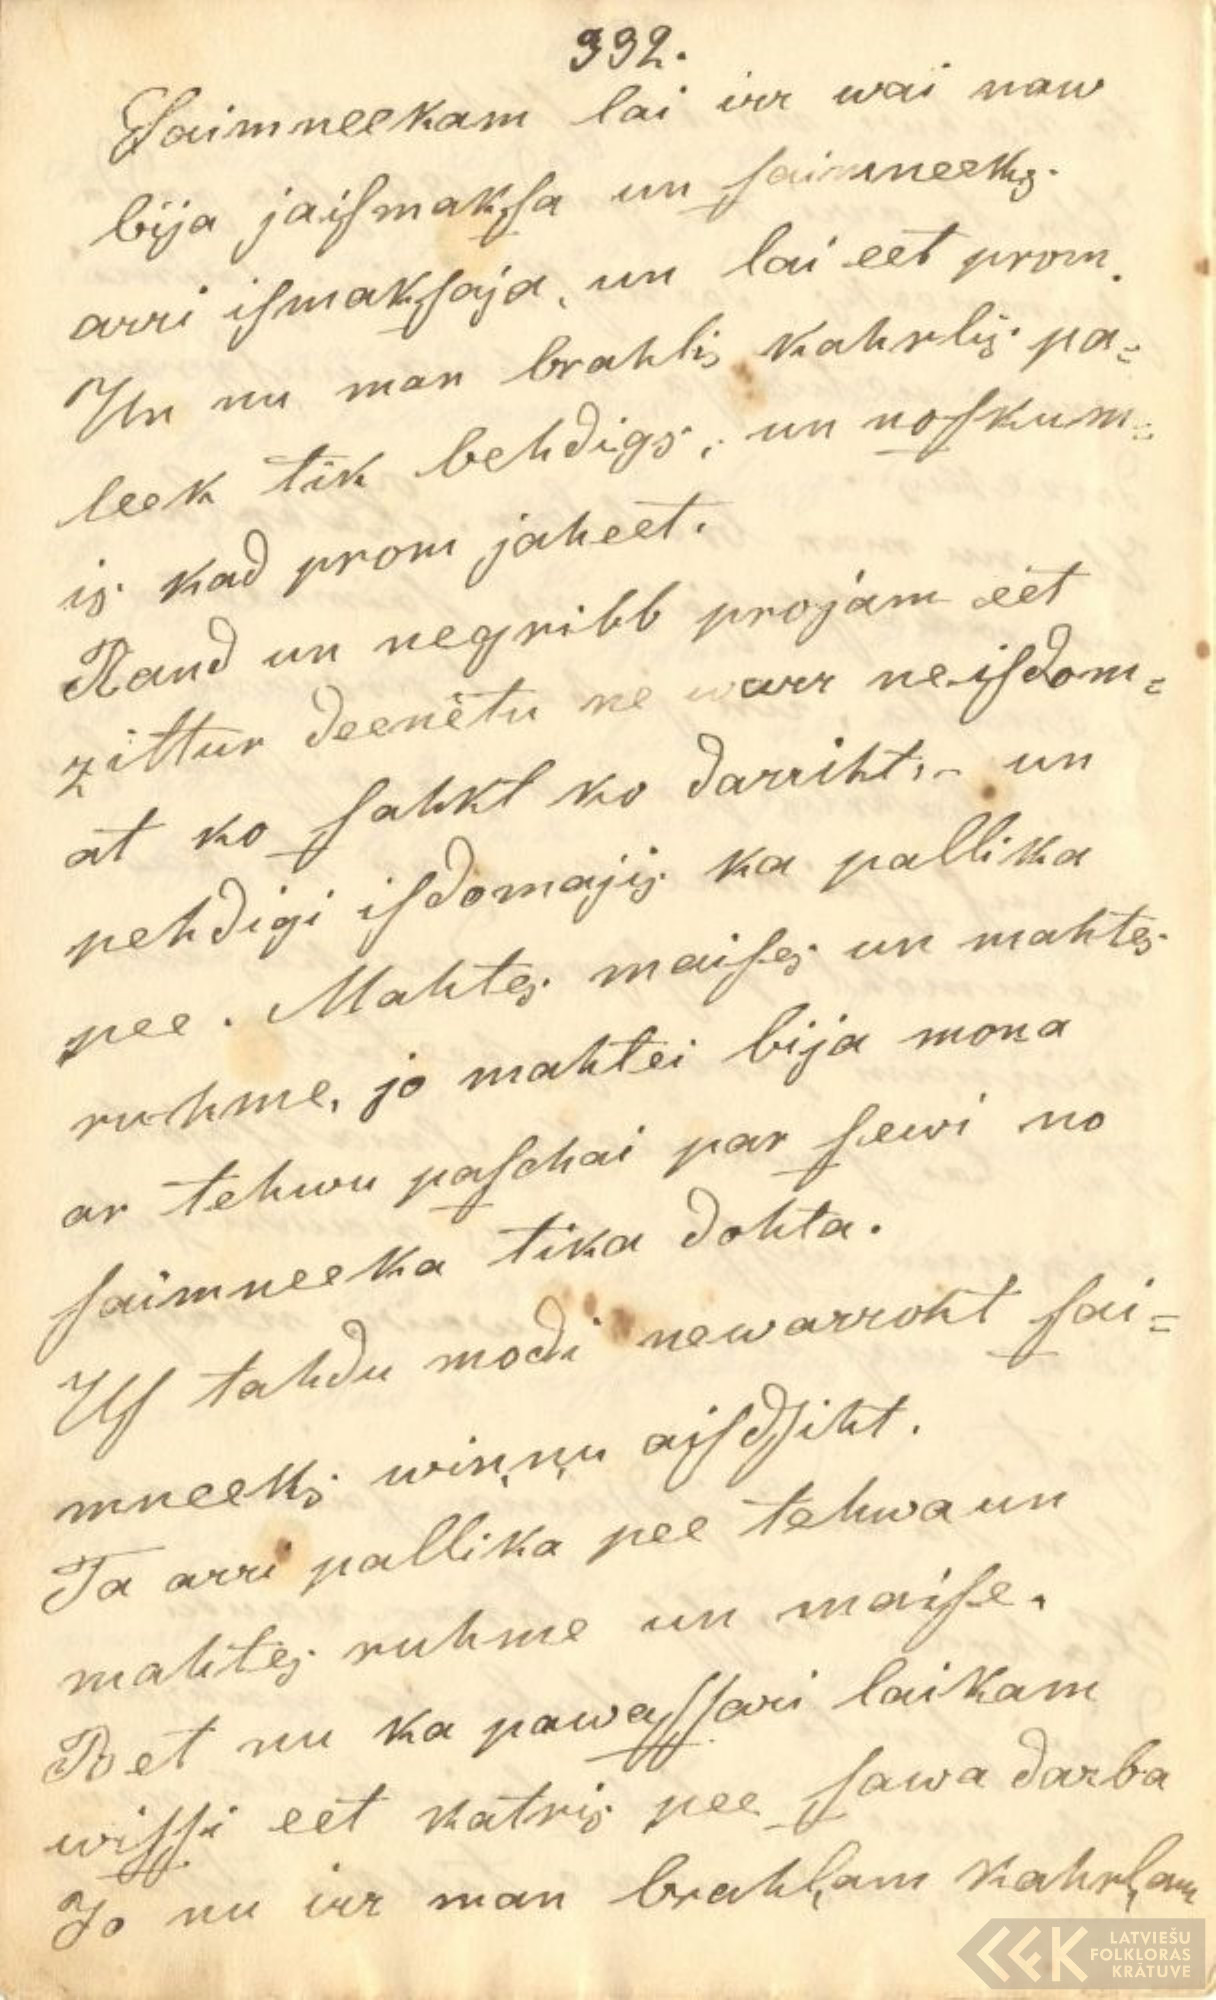 332.
Saimneekam lai irr wai naw
bija jaiſmakſa un ſaimneeks.
arri iſmakſaja, un lai eet prom.
Un nu man brahlis kahrlis pa=
leek tik behdigs, un noſkum=
is kad prom jaheet.
Raud un negribb projam eet
zittur deenetu ne warr ne iſdom=
at ko ſahkt ko darriht, un
pehdigi iſdomajis ka pallika
pee. Mahtes maiſes un mahtes
ruhme, jo mahtei bija mona
ar tehwu paſchai par ſewi no
ſaimneeka tika dohta.
Uſ tahdu modi newarroht ſai=
mneeks winņu aiſdſiht.
Ta arri pallika pee tehwa un
mahtes ruhme un maiſe.
Bet nu ka pawaſſari laikam
wiſſi eet katris pee ſawa darba
Jo nu irr man brahļam kahrļam
LATVIEŠU
FOLKLORAS
KRĀTUVE